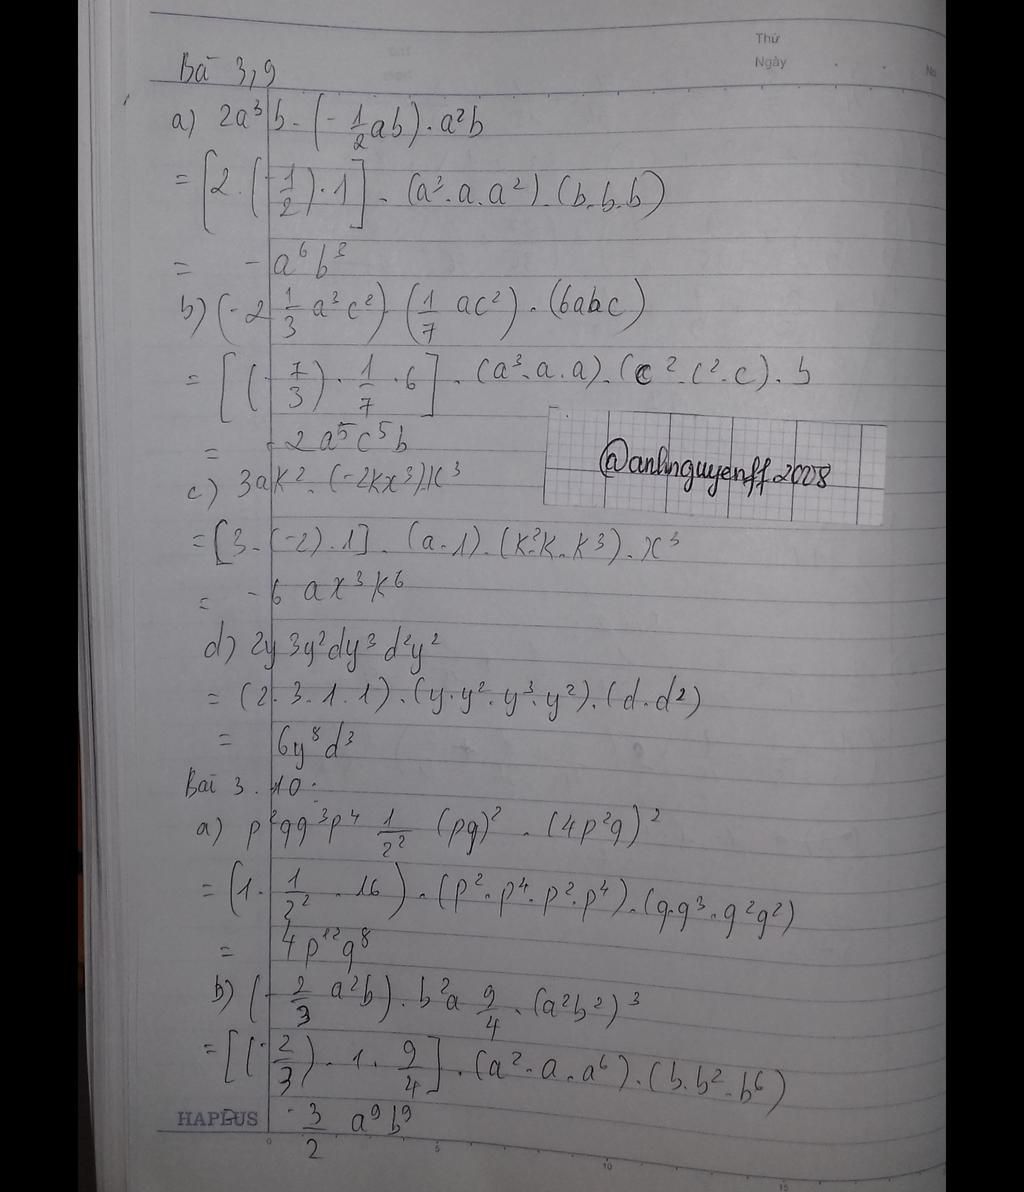 Thứ
Ngày
No
Bài 3,9
a) 2a³b.(-1/2ab).a²b
= [2.(-1/2).1].(a³.a.a²).(b.b.b)
= -a⁶b³
b) (-2 1/3 a³c²) (1/7 ac²).(6abc)
= [(-7/3).1/7.6].(a³.a.a).(c².c².c).b
= -2a⁵c⁵b
@anhnguyenff2008
c) 3ak².(-2kx³)k³
= [3.(-2).1].(a.1).(k².k.k³).x³
= -6 ax³k⁶
d) 2y3y²dy³d²y²
= (2.3.1.1).(y.y².y³.y²).(d.d²)
= 6y⁸d³
Bài 3.10:
a) p²qq³p⁴ 1/2² (pq)².(4p²q)²
= (1.1/2².16).(p².p⁴.p².p⁴).(q.q³.q²q²)
= 4p¹²q⁸
b) (-2/3 a²b).b²a 9/4.(a²b²)³
= [(-2/3).1.9/4].(a².a.a⁶).(b.b².b⁶)
HAPLUS = -3/2 a⁹b⁹
0 5 10 15